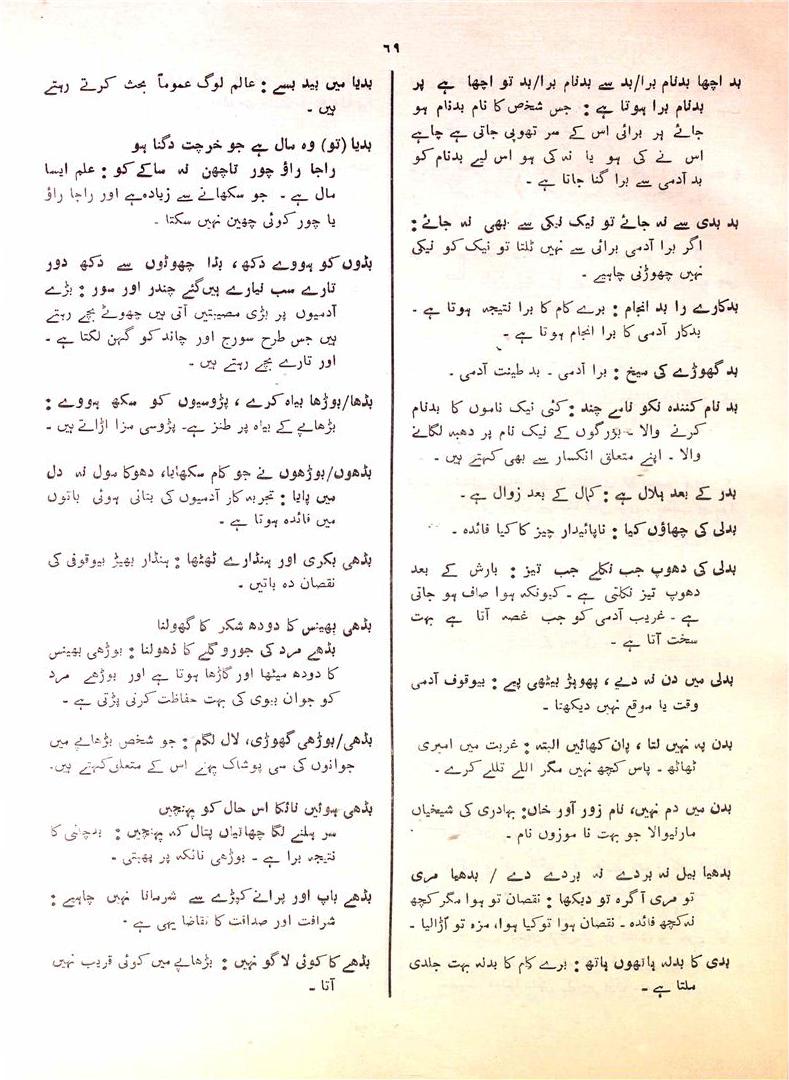 ٦٩
بد اچھا بدنام برا/بد سے بدنام برا/بد تو اچھا ہے پر
بدنام برا ہوتا ہے : جس شخص کا نام بدنام ہو
جائے ہر برائی اس کے سر تھوپی جاتی ہے چاہے
اس نے کی ہو یا نہ کی ہو اس لیے بدنام کو
بد آدمی سے برا گنا جاتا ہے ۔
بد بدی سے نہ جائے تو نیک نیکی سے بھی نہ جائے :
اگر برا آدمی برائی سے نہیں ٹلتا تو نیک کو نیکی
نہیں چھوڑنی چاہیے ۔
بدکارے را بد انجام : برے کام کا برا نتیجہ ہوتا ہے ۔
بدکار آدمی کا برا انجام ہوتا ہے ۔
بد گھوڑے کی میخ : برا آدمی ۔ بد طینت آدمی ۔
بد نام کنندہ نکو نامے چند : کئی نیک ناموں کا بدنام
کرنے والا ۔ بزرگوں کے نیک نام پر دھبہ لگانے
والا ۔ اپنے متعلق انکسار سے بھی کہتے ہیں ۔
بدر کے بعد ہلال ہے : کمال کے بعد زوال ہے ۔
بدلی کی چھاؤں کیا : ناپائیدار چیز کا کیا فائدہ ۔
بدلی کی دھوپ جب نکلے جب تیز : بارش کے بعد
دھوپ تیز نکلتی ہے ۔ کیونکہ ہوا صاف ہو جاتی
ہے ۔ غریب آدمی کو جب غصہ آتا ہے بہت
سخت آتا ہے ۔
بدلی میں دن نہ دیے ، پھوہڑ بیٹھی پیے : بیوقوف آدمی
وقت یا موقع نہیں دیکھتا ۔
بدن پہ نہیں لتا ، پان کھائیں البتہ : غربت میں امیری
ٹھاٹھ ۔ پاس کچھ نہیں مگر اللے تللے کرے ۔
بدن میں دم نہیں، نام زور آور خاں: بہادری کی شیخیاں
مارنیوالا جو بہت نا موزوں نام ۔
بدھیا بیل نہ ہردے نہ ہردے دے / بدھیا مری
تو مری آگرہ تو دیکھا : نقصان تو ہوا مگر کچھ
نہ کچھ فائدہ ۔ نقصان ہوا تو کیا ہوا، مزہ تو اڑالیا ۔
بدی کا بدلہ ہاتھوں ہاتھ : برے کام کا بدلہ بہت جلدی
ملتا ہے ۔
بدیا میں بید بسے : عالم لوگ عموماً بحث کرتے رہتے
ہیں ۔
بدیا (تو) وہ مال ہے جو خرچت دگنا ہو
راجا راؤ چور تاچھن نہ ساکے کو : علم ایسا
مال ہے ۔ جو سکھانے سے زیادہ ہے اور راجا راؤ
یا چور کوئی چھین نہیں سکتا ۔
بڈوں کو ہووے دکھ ، بڈا چھوٹوں سے دکھ دور
تارے سب نیارے ہیں گئے چندر اور سور : بڑے
آدمیوں پر بڑی مصیبتیں آتی ہیں چھوٹے بچے رہتے
ہیں جس طرح سورج اور چاند کو گہن لگتا ہے ۔
اور تارے بچے رہتے ہیں ۔
بڈھا/بوڑھا بیاہ کرے ، پڑوسیوں کو سکھ ہووے :
بڑھاپے کے بیاہ پر طنز ہے۔ پڑوسی مزا اڑاتے ہیں ۔
بڈھوں/بوڑھوں نے جو کام سکھایا، دھوکا مول نہ دل
میں پایا : تجربہ کار آدمیوں کی بتائی ہوئی باتوں
میں فائدہ ہوتا ہے ۔
بڈھی بکری اور ہنڈارے ٹھٹھا : ہنڈار بھیڑ بیوقوفی کی
نقصان دہ باتیں ۔
بڈھی بھینس کا دودھ شکر کا گھولنا
بڈھے مرد کی جورو گلے کا ڈھولنا : بوڑھی بھینس
کا دودھ میٹھا اور گاڑھا ہوتا ہے اور بوڑھے مرد
کو جوان بیوی کی بہت حفاظت کرنی پڑتی ہے ۔
بڈھی/بوڑھی گھوڑی، لال لگام : جو شخص بڑھاپے میں
جوانوں کی سی پوشاک پہنے اس کے متعلق کہتے ہیں۔
بڈھی ہوئیں نائکا اس حال کو پہنچیں
سر ہلنے لگا چھاتیاں پتال کہ پہنچیں : بدچلنی کا
نتیجہ برا ہے ۔ بوڑھی نائکہ پر پھبتی ۔
بڈھے باپ اور پرانے کپڑے سے شرمانا نہیں چاہیے :
شرافت اور صداقت کا تقاضا یہی ہے ۔
بڈھے کا کوئی لاگو نہیں : بڑھاپے میں کوئی قریب نہیں
آتا ۔